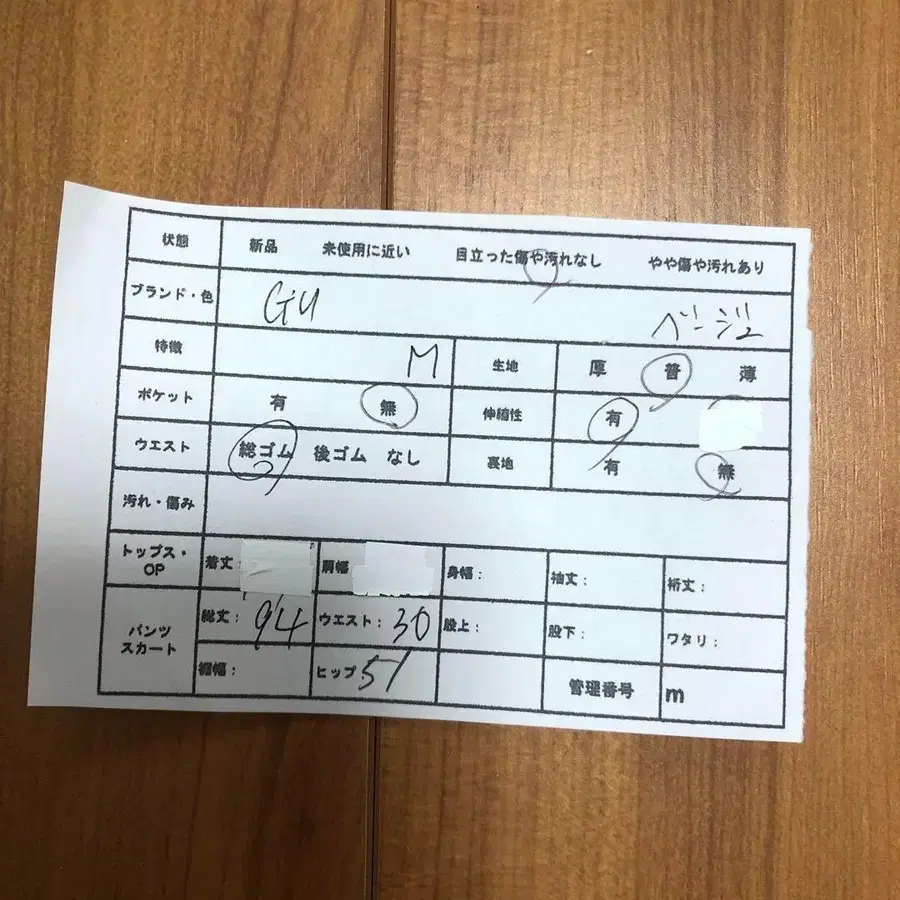 状態 新品 未使用に近い 目立った傷や汚れなし やや傷や汚れあり
ブランド・色 GU ベージュ
特徴 M 生地 厚 普 薄
ポケット 有 無 伸縮性 有
ウエスト 総ゴム 後ゴム なし 裏地 有 無
汚れ・傷み
トップス・OP 着丈 肩幅 身幅: 袖丈: 裄丈:
パンツ スカート 総丈: 94 ウエスト: 30 股上: 股下: ワタリ:
裾幅: ヒップ 51 管理番号 m